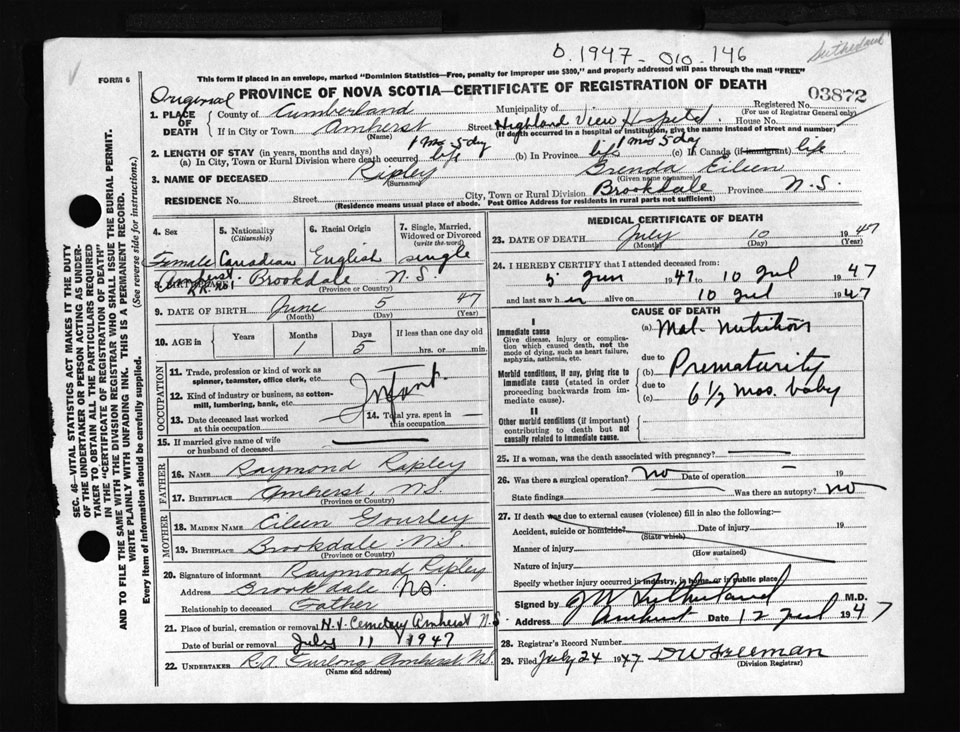 0.1947-010-146
Sutherland
FORM 6
This form if placed in an envelope, marked "Dominion Statistics—Free, penalty for improper use $300," and properly addressed will pass through the mail "FREE"
Original
PROVINCE OF NOVA SCOTIA—CERTIFICATE OF REGISTRATION OF DEATH
Registered No. 03872
(For use of Registrar General only)
1. PLACE OF DEATH { County of Cumberland Municipality of
If in City or Town Amherst Street Highland View Hospital House No.
(Name) (If death occurred in a hospital or institution, give the name instead of street and number)
2. LENGTH OF STAY (in years, months and days) 1 mo 5 day 1 mo 5 day
(a) In City, Town or Rural Division where death occurred life (b) In Province life (c) In Canada (if immigrant) life
3. NAME OF DECEASED Ripley Grenda Eileen
(Surname) (Given name or names)
RESIDENCE No. Street City, Town or Rural Division Brookdale Province N.S.
(Residence means usual place of abode. Post Office Address for residents in rural parts not sufficient)
4. Sex
Female
5. Nationality
(Citizenship)
Canadian
6. Racial Origin
English
7. Single, Married, Widowed or Divorced
(write the word)
single
Amherst
8. Brookdale N.S.
R.R. No 1 (Province or Country)
9. DATE OF BIRTH June 5 47
(Month) (Day) (Year)
10. AGE in Years Months Days If less than one day old
1 5 hrs. or min.
OCCUPATION
11. Trade, profession or kind of work as spinner, teamster, office clerk, etc.
12. Kind of industry or business, as cotton-mill, lumbering, bank, etc. Infant
13. Date deceased last worked at this occupation 14. Total yrs. spent in this occupation
15. If married give name of wife or husband of deceased
FATHER
16. NAME Raymond Ripley
17. BIRTHPLACE Amherst, N.S.
(Province or Country)
MOTHER
18. MAIDEN NAME Eileen Gourley
19. BIRTHPLACE Brookdale N.S.
(Province or Country)
20. Signature of informant Raymond Ripley
Address Brookdale NS
Relationship to deceased Father
21. Place of burial, cremation or removal H.V. Cemetery Amherst N.S
Date of burial or removal July 11 1947
22. UNDERTAKER R.A. Furlong Amherst N.S.
(Name and address)
MEDICAL CERTIFICATE OF DEATH
23. DATE OF DEATH July 10 1947
(Month) (Day) (Year)
24. I HEREBY CERTIFY that I attended deceased from:
5 Jun 1947 to 10 Jul 1947
and last saw her alive on 10 Jul 1947
CAUSE OF DEATH
I
Immediate cause
Give disease, injury or complication which caused death, not the mode of dying, such as heart failure, asphyxia, asthenia, etc.
(a) Mal-nutrition
due to
Morbid conditions, if any, giving rise to immediate cause (stated in order proceeding backwards from immediate cause).
(b) Prematurity
due to
(c) 6½ mos. baby
II
Other morbid conditions (if important) contributing to death but not causally related to immediate cause.
25. If a woman, was the death associated with pregnancy?
26. Was there a surgical operation? no Date of operation 19
State findings Was there an autopsy? no
27. If death was due to external causes (violence) fill in also the following:—
Accident, suicide or homicide? Date of injury 19
(State which)
Manner of injury
(How sustained)
Nature of injury
Specify whether injury occurred in industry, in home, or in public place
Signed by J W Sutherland M.D.
Address Amherst Date 12 Jul 1947
28. Registrar's Record Number
29. Filed July 24 1947 D W Freeman
(Division Registrar)
SEC. 46—VITAL STATISTICS ACT MAKES IT THE DUTY
OF THE UNDERTAKER OR PERSON ACTING AS UNDER-
TAKER TO OBTAIN ALL THE PARTICULARS REQUIRED
IN THE "CERTIFICATE OF REGISTRATION OF DEATH"
AND TO FILE THE SAME WITH THE DIVISION REGISTRAR WHO SHALL ISSUE THE BURIAL PERMIT.
WRITE PLAINLY WITH UNFADING INK. THIS IS A PERMANENT RECORD.
Every item of information should be carefully supplied. (See reverse side for instructions.)